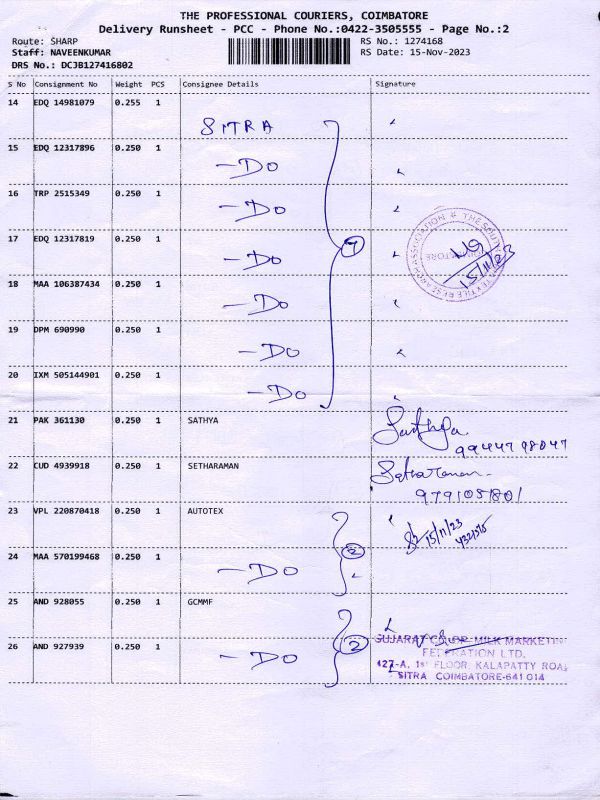 THE PROFESSIONAL COURIERS, COIMBATORE
Delivery Runsheet - PCC - Phone No.:0422-3505555 - Page No.:2
Route: SHARP RS No.: 1274168
Staff: NAVEENKUMAR RS Date: 15-Nov-2023
DRS No.: DCJB127416802
S No Consignment No Weight PCS Consignee Details Signature
14 EDQ 14981079 0.255 1 SITRA
15 EDQ 12317896 0.250 1 -Do
16 TRP 2515349 0.250 1 -Do
17 EDQ 12317819 0.250 1 -Do
7
15/11/23
18 MAA 106387434 0.250 1 -Do
19 DPM 690990 0.250 1 -Do
20 IXM 505144901 0.250 1 -Do
21 PAK 361130 0.250 1 SATHYA Sathya
99447 98047
22 CUD 4939918 0.250 1 SETHARAMAN Setharaman
9791051801
23 VPL 220870418 0.250 1 AUTOTEX
15/11/23
2
24 MAA 570199468 0.250 1 -Do
25 AND 928055 0.250 1 GCMMF
2
26 AND 927939 0.250 1 -Do
GUJARAT CO.OP. MILK MARKETING
FEDERATION LTD.
427-A, 1st FLOOR, KALAPATTY ROAD
SITRA COIMBATORE-641 014